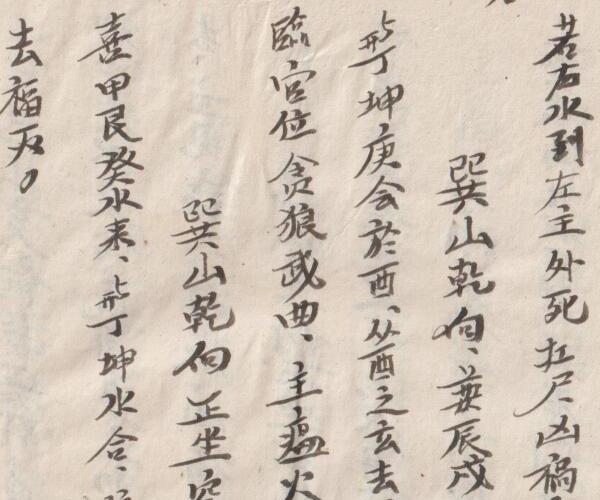 若右水到左主外死扛尸、凶禍
巽山乾向、兼辰戌
丁坤庚会於酉、从酉之玄去
臨官位貪狼武曲、主瘟火
巽山乾向正坐穴
喜甲艮癸水来、丁坤水合、
去福灭。